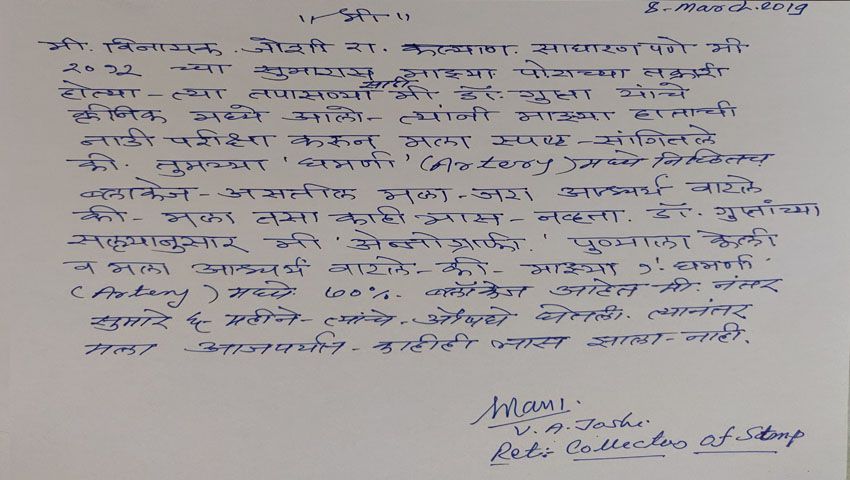 ॥ श्री ॥
8-March.2019
मी. विनायक. जोशी रा. कल्याण. साधारणपणे मी
२०१२ च्या सुमारास माझ्या पोटाच्या तक्रारी
होत्या- त्या तपासण्यासाठी मी डॉ. गुप्ता यांचे
क्लीनिक मध्ये आलो- त्यांनी माझ्या हाताची
नाडी परीक्षा करुन मला स्पष्ट - सांगितले
की. तुमच्या 'धमणी' (Artery) मध्ये निश्चितच
ब्लाकेज - असतील मला - जरा आश्चर्य वाटले
की - मला तसा काही त्रास - नव्हता. डॉ. गुप्तांच्या
सल्यानुसार मी 'अेन्जोग्राफी.' पुण्याला केली
व मला आश्चर्य वाटले - की - माझ्या धमणी
(Artery) मध्ये ७०%. ब्लॉकेज आहेत मी. नंतर
सुमारे ६ महीने - त्यांचे - औषधे घेतली. त्यानंतर
मला आजपर्यंत - काहीही त्रास झाला - नाही.
V. A. Joshi.
Ret: Collector of Stamp